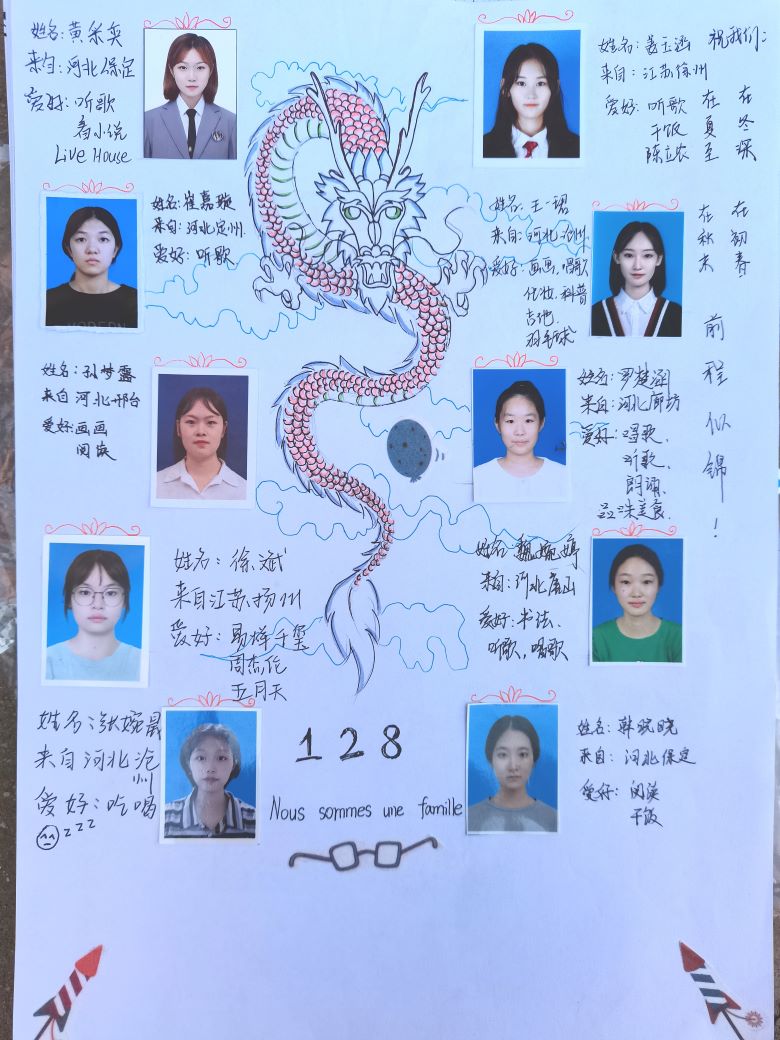 姓名:黄采奕
来自:河北保定
爱好:听歌
看小说
Live House
姓名:姜玉涵
来自:江苏徐州
爱好:听歌
干饭
陈立农
祝我们:
在冬深
在夏至
在初春
在秋末
前程似锦!
姓名:崔嘉璇
来自:河北定州
爱好:听歌
姓名:王一珺
来自:河北沧州
爱好:画画、唱歌
化妆、科普
吉他、
羽毛球
姓名:孙梦露
来自河北邢台
爱好:画画
阅读
姓名:罗楚涵
来自:河北廊坊
爱好:唱歌、
听歌、
朗诵、
品味美食、
姓名:徐斌
来自江苏扬州
爱好:易烊千玺
周杰伦
五月天
姓名:魏婉婷
来自:河北唐山
爱好:书法、
听歌,唱歌
姓名:张婉晨
来自河北沧
州
爱好:吃喝
zzz
姓名:韩晓晓
来自:河北保定
爱好:阅读
干饭
128
Nous sommes une famille